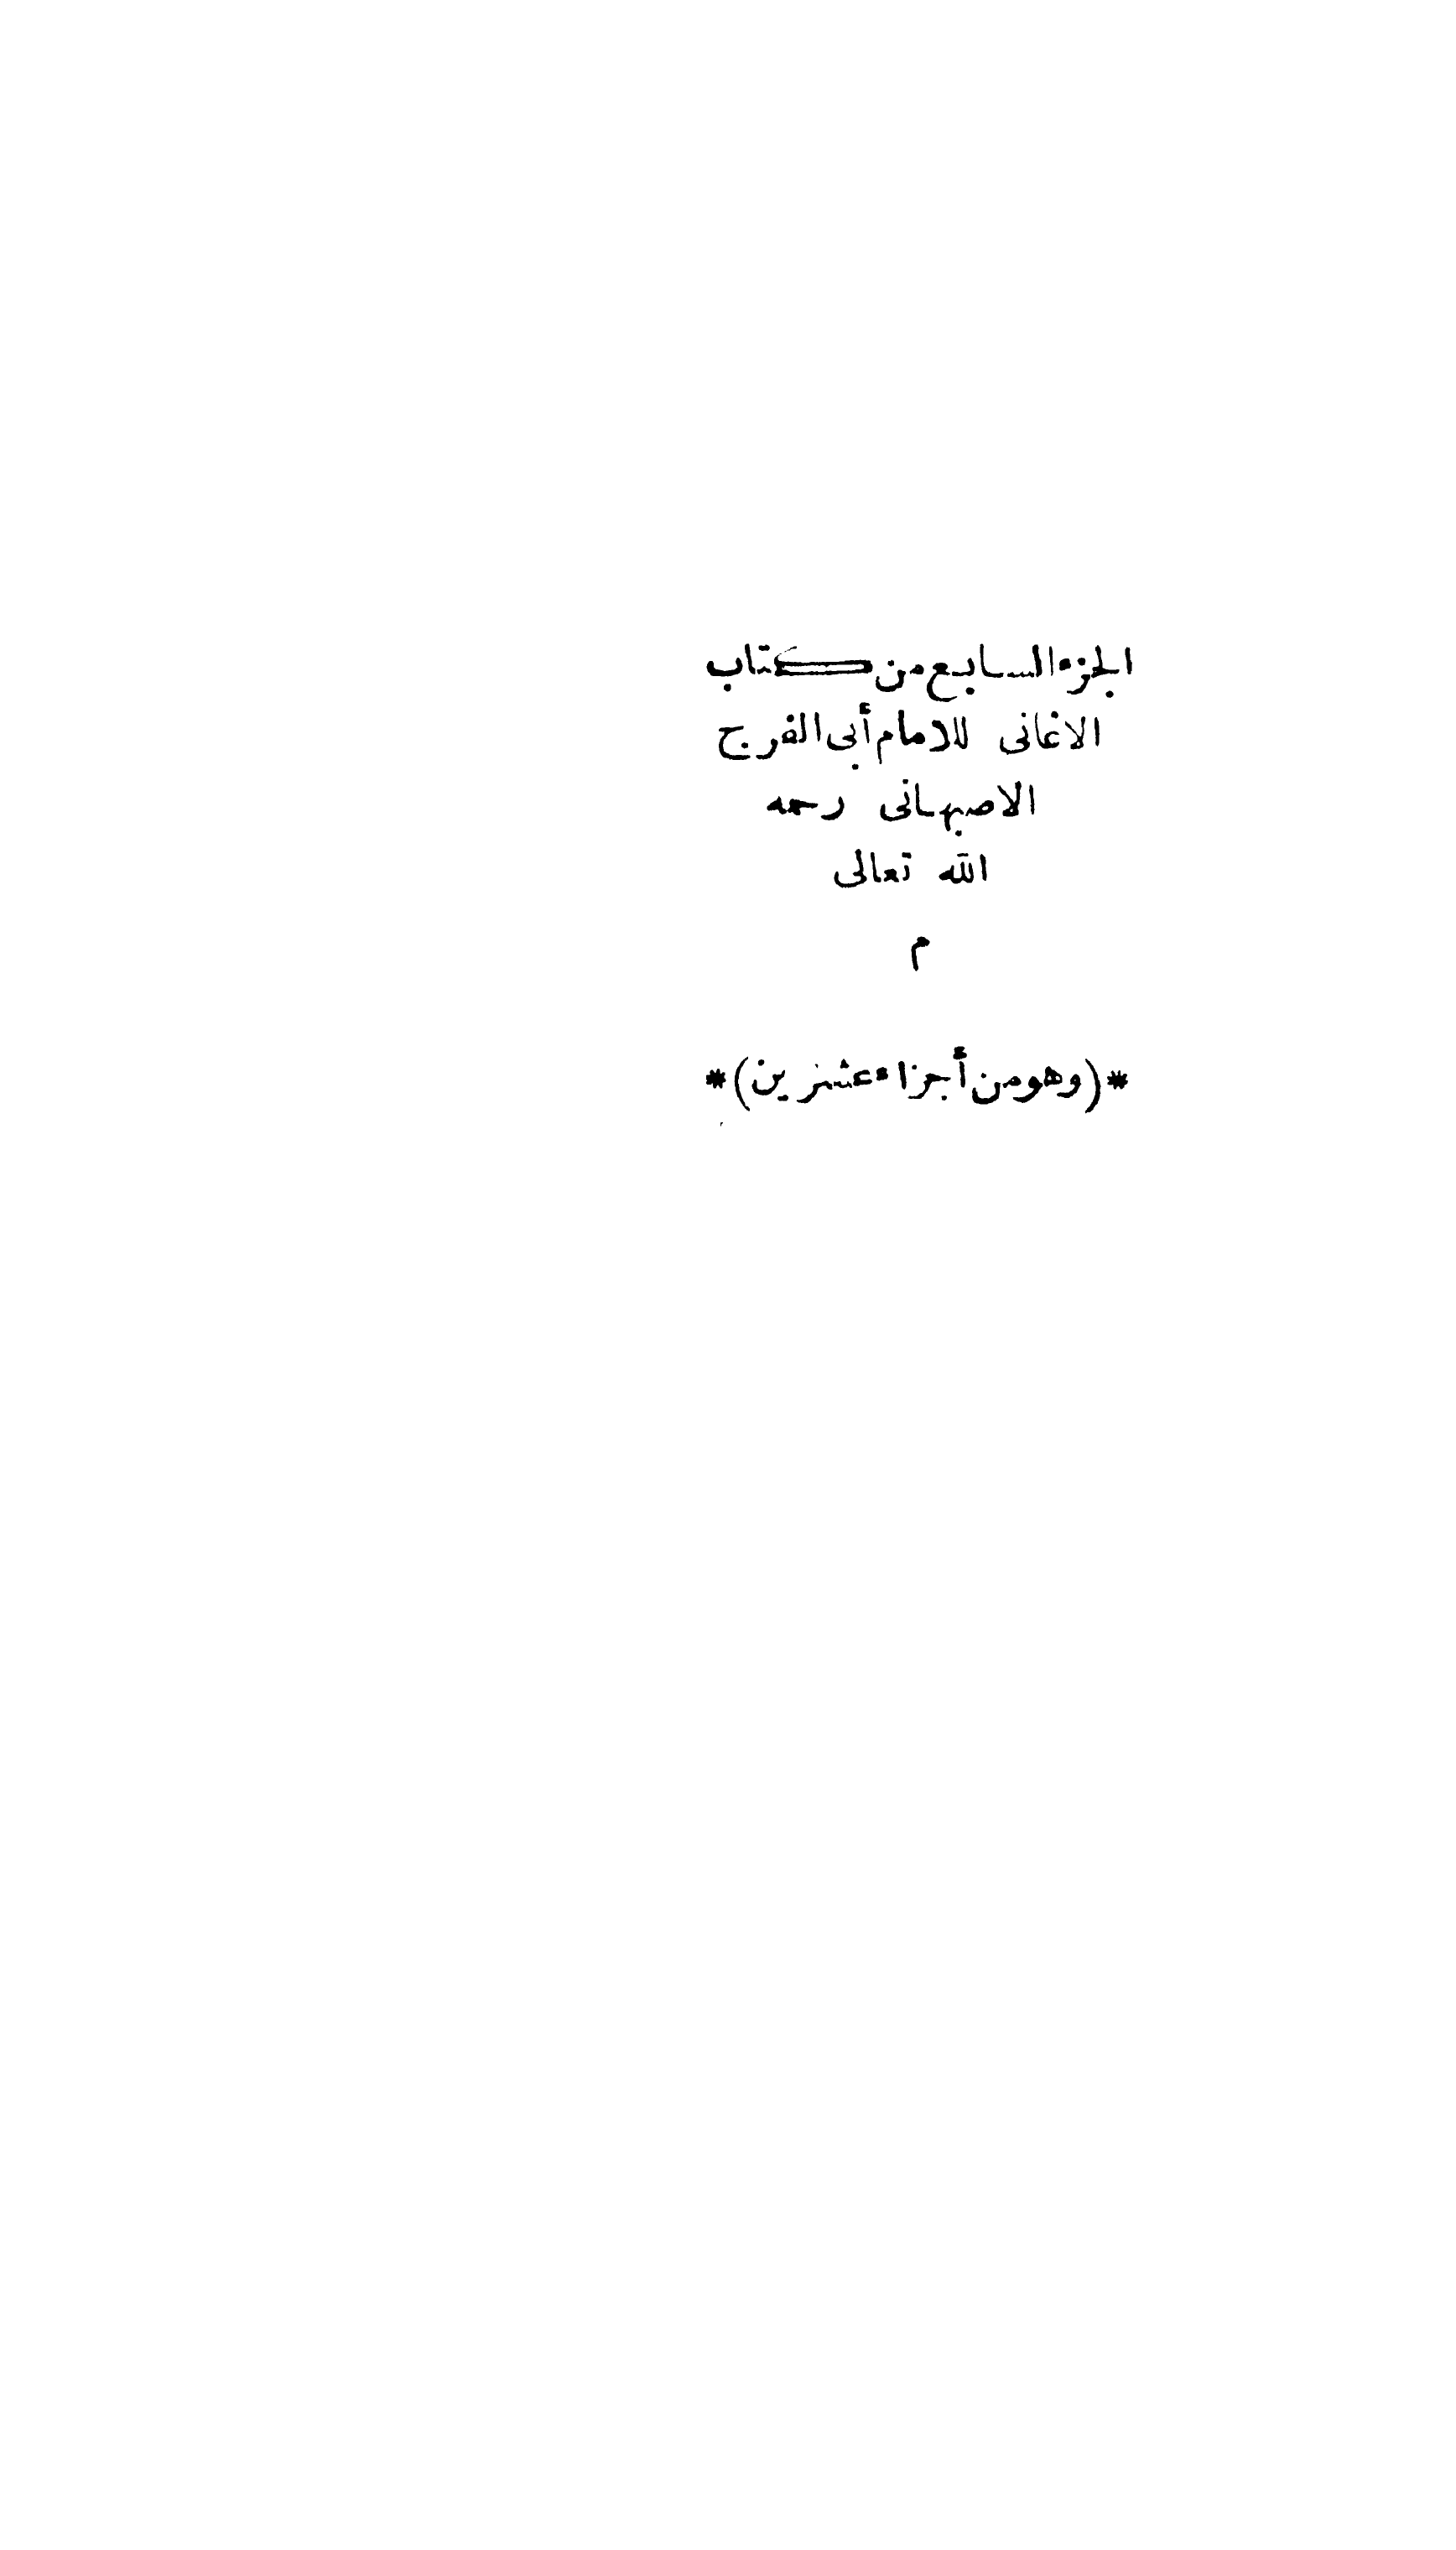 الجزء السابع من كتاب
الاغانى للامام أبى الفرج
الاصبهانى رحمه
الله تعالى
م
*(وهو من أجزاء عشرين)*